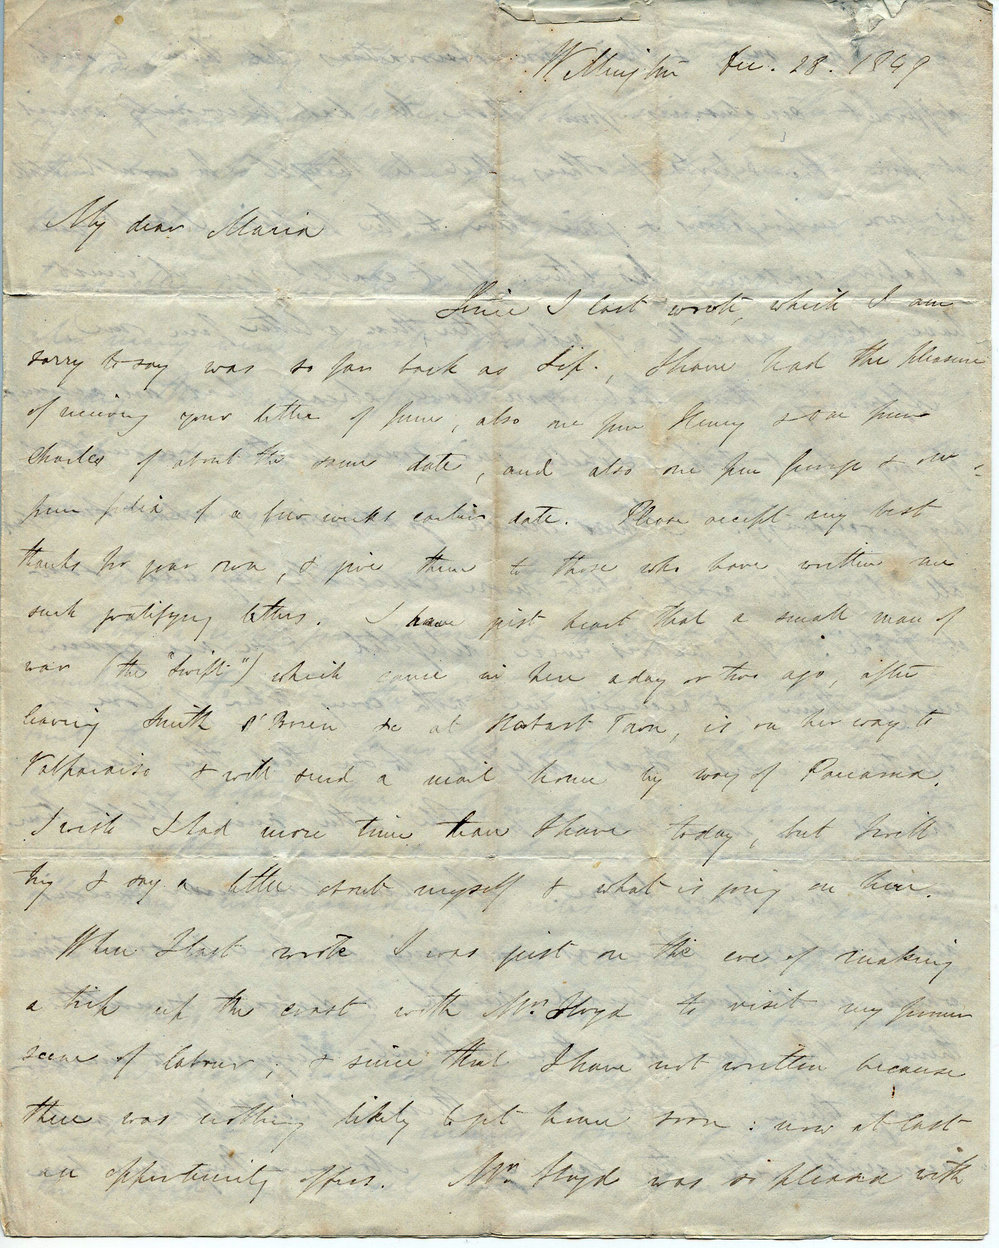 Wellington Dec. 28. 1849
My dear Maria
Since I last wrote, which I am
sorry to say was so far back as Sep., I have had the pleasure
of receiving your letter of June, also one from Henry & one from
Charles of about the same date, and also one from George & one
from Julia of a few weeks earlier date. Please accept my best
thanks for your own, & give them to those who have written me
such gratifying letters. I have just heard that a small man of
war (the "Swift") which came in here a day or two ago, after
leaving Smith O'Brien &c at Hobart Town, is on her way to
Valparaiso & will send a mail home by way of Panama.
I wish I had more time than I have today, but I will
try & say a little about myself & what is going on here.
When I last wrote I was just on the eve of making
a trip up the coast with Mr. Lloyd to visit my former
scene of labour, & since that I have not written because
there was nothing likely to get home soon: now at last
an opportunity offers. Mr. Lloyd was so pleased with